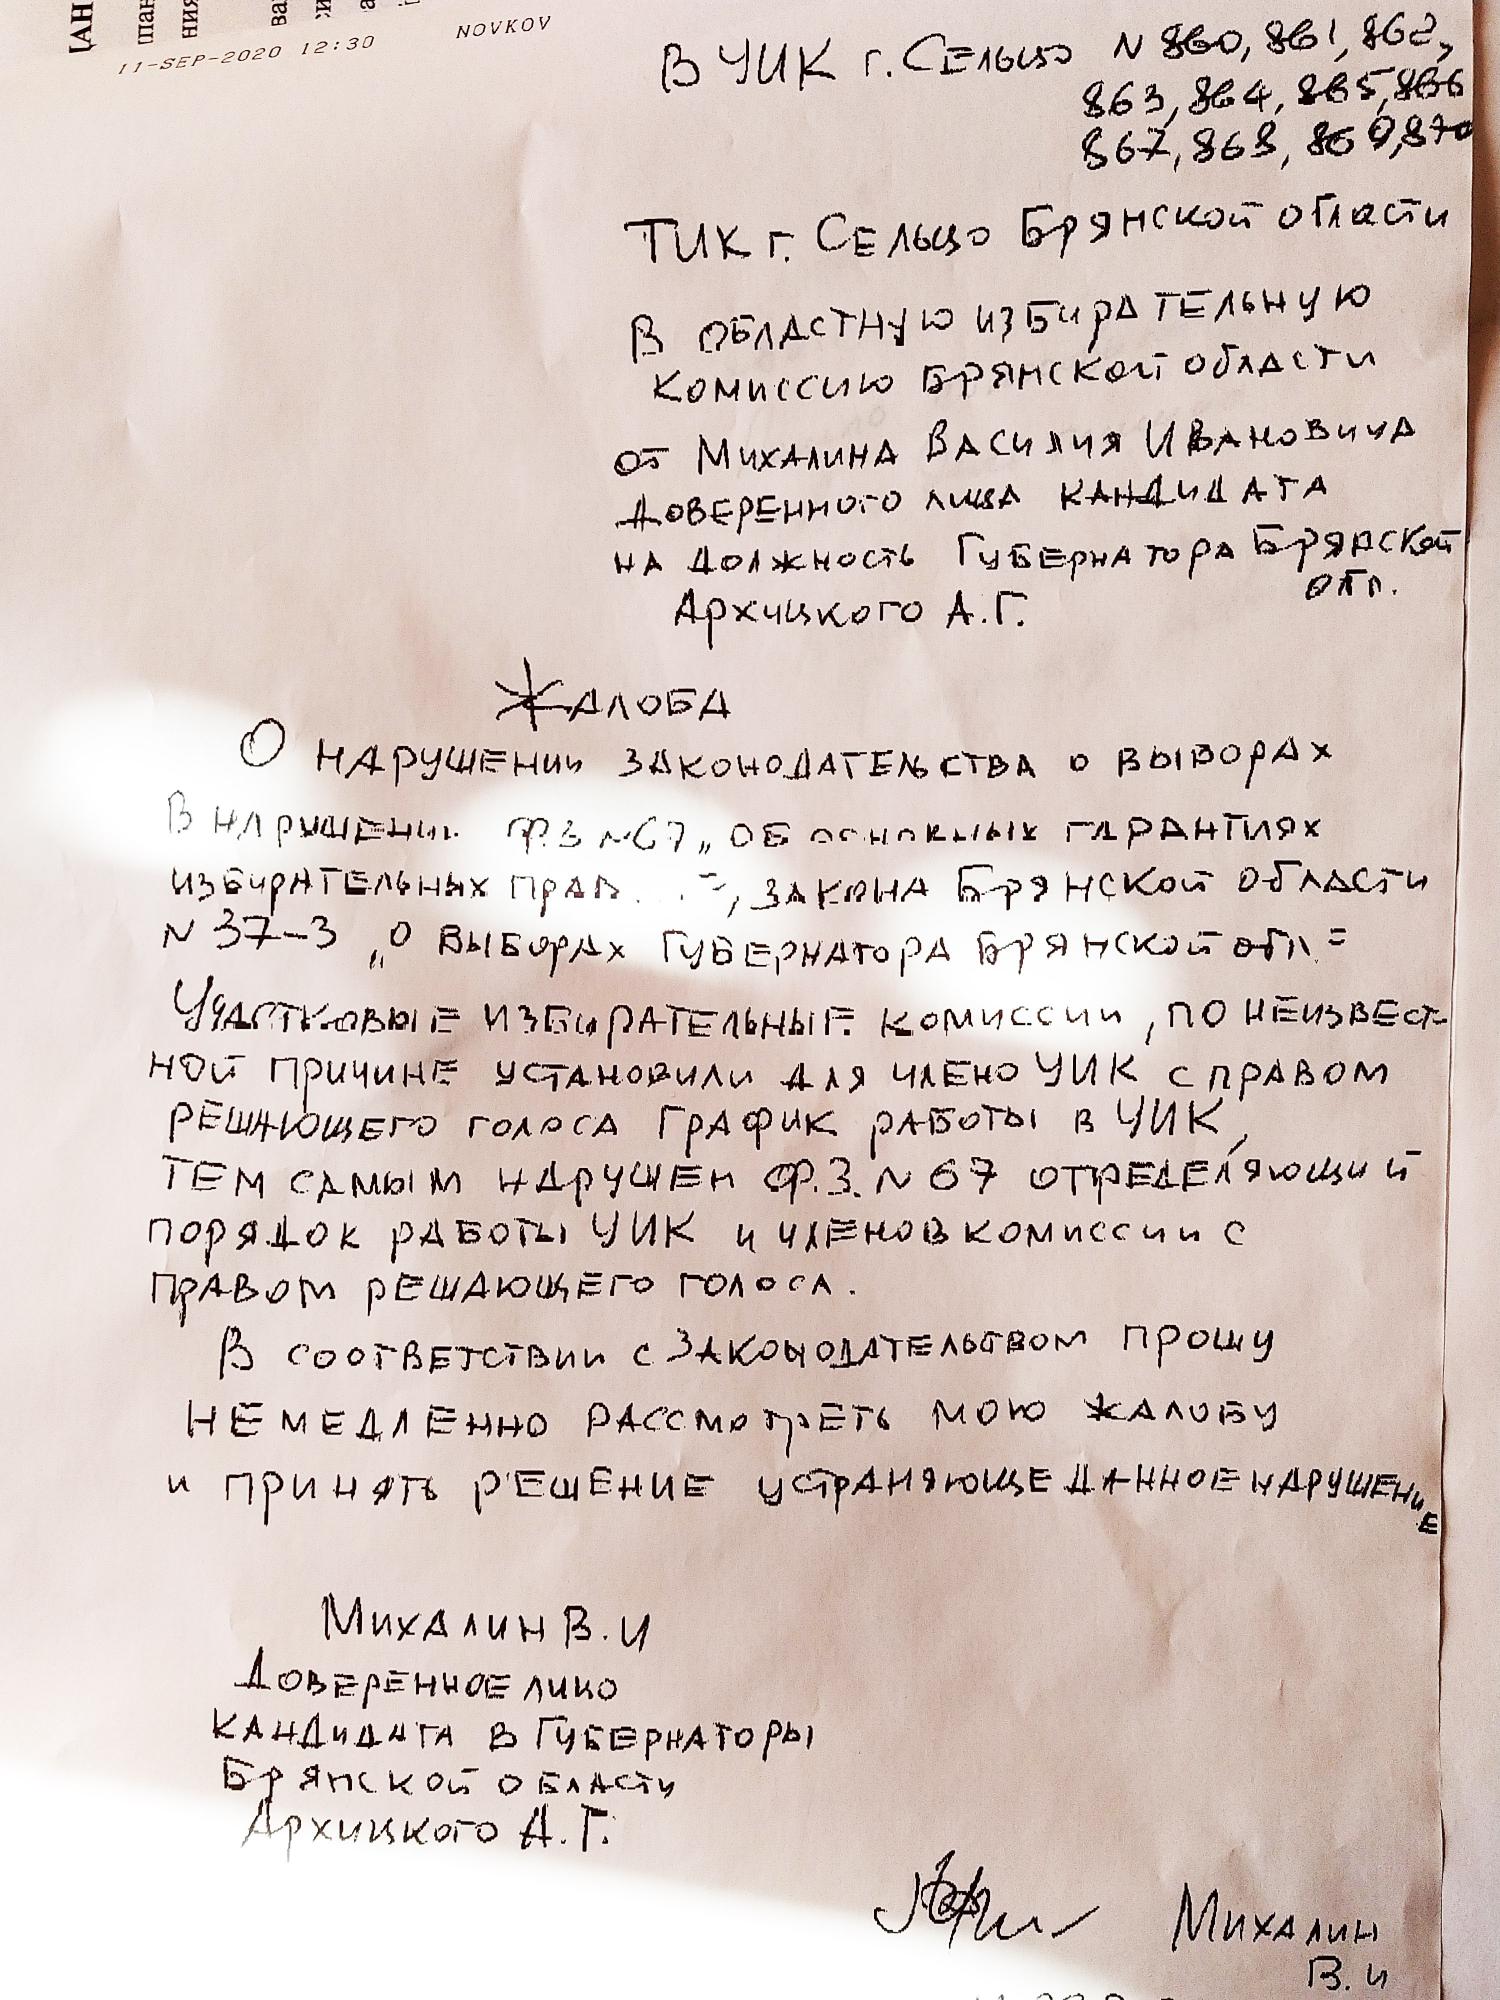 11-SEP-2020 12:30 NOVKOV
В УИК г. Сельцо N 860, 861, 862,
863, 864, 865, 866
867, 868, 869, 870
ТИК г. Сельцо Брянской области
В областную избирательную
комиссию Брянской области
от Михалина Василия Ивановича
доверенного лица кандидата
на должность Губернатора Брянской
обл.
Архицкого А.Г.
Жалоба
О нарушении законодательства о выборах
В нарушении Ф.З N67 „Об основных гарантиях
избирательных прав ...", закона Брянской области
N 37-З „О выборах Губернатора Брянской обл."
Участковые избирательные комиссии, по неизвест-
ной причине установили для члено УИК с правом
решающего голоса график работы в УИК,
тем самым нарушен Ф.З. N 67 определяющий
порядок работы УИК и членов комиссии с
правом решающего голоса.
В соответствии с законодательством прошу
немедленно рассмотреть мою жалобу
и принять решение устраняюще данное нарушение
Михалин В.И
Доверенное лицо
кандидата в Губернаторы
Брянской области
Архицкого А.Г.
Михалин
В.И